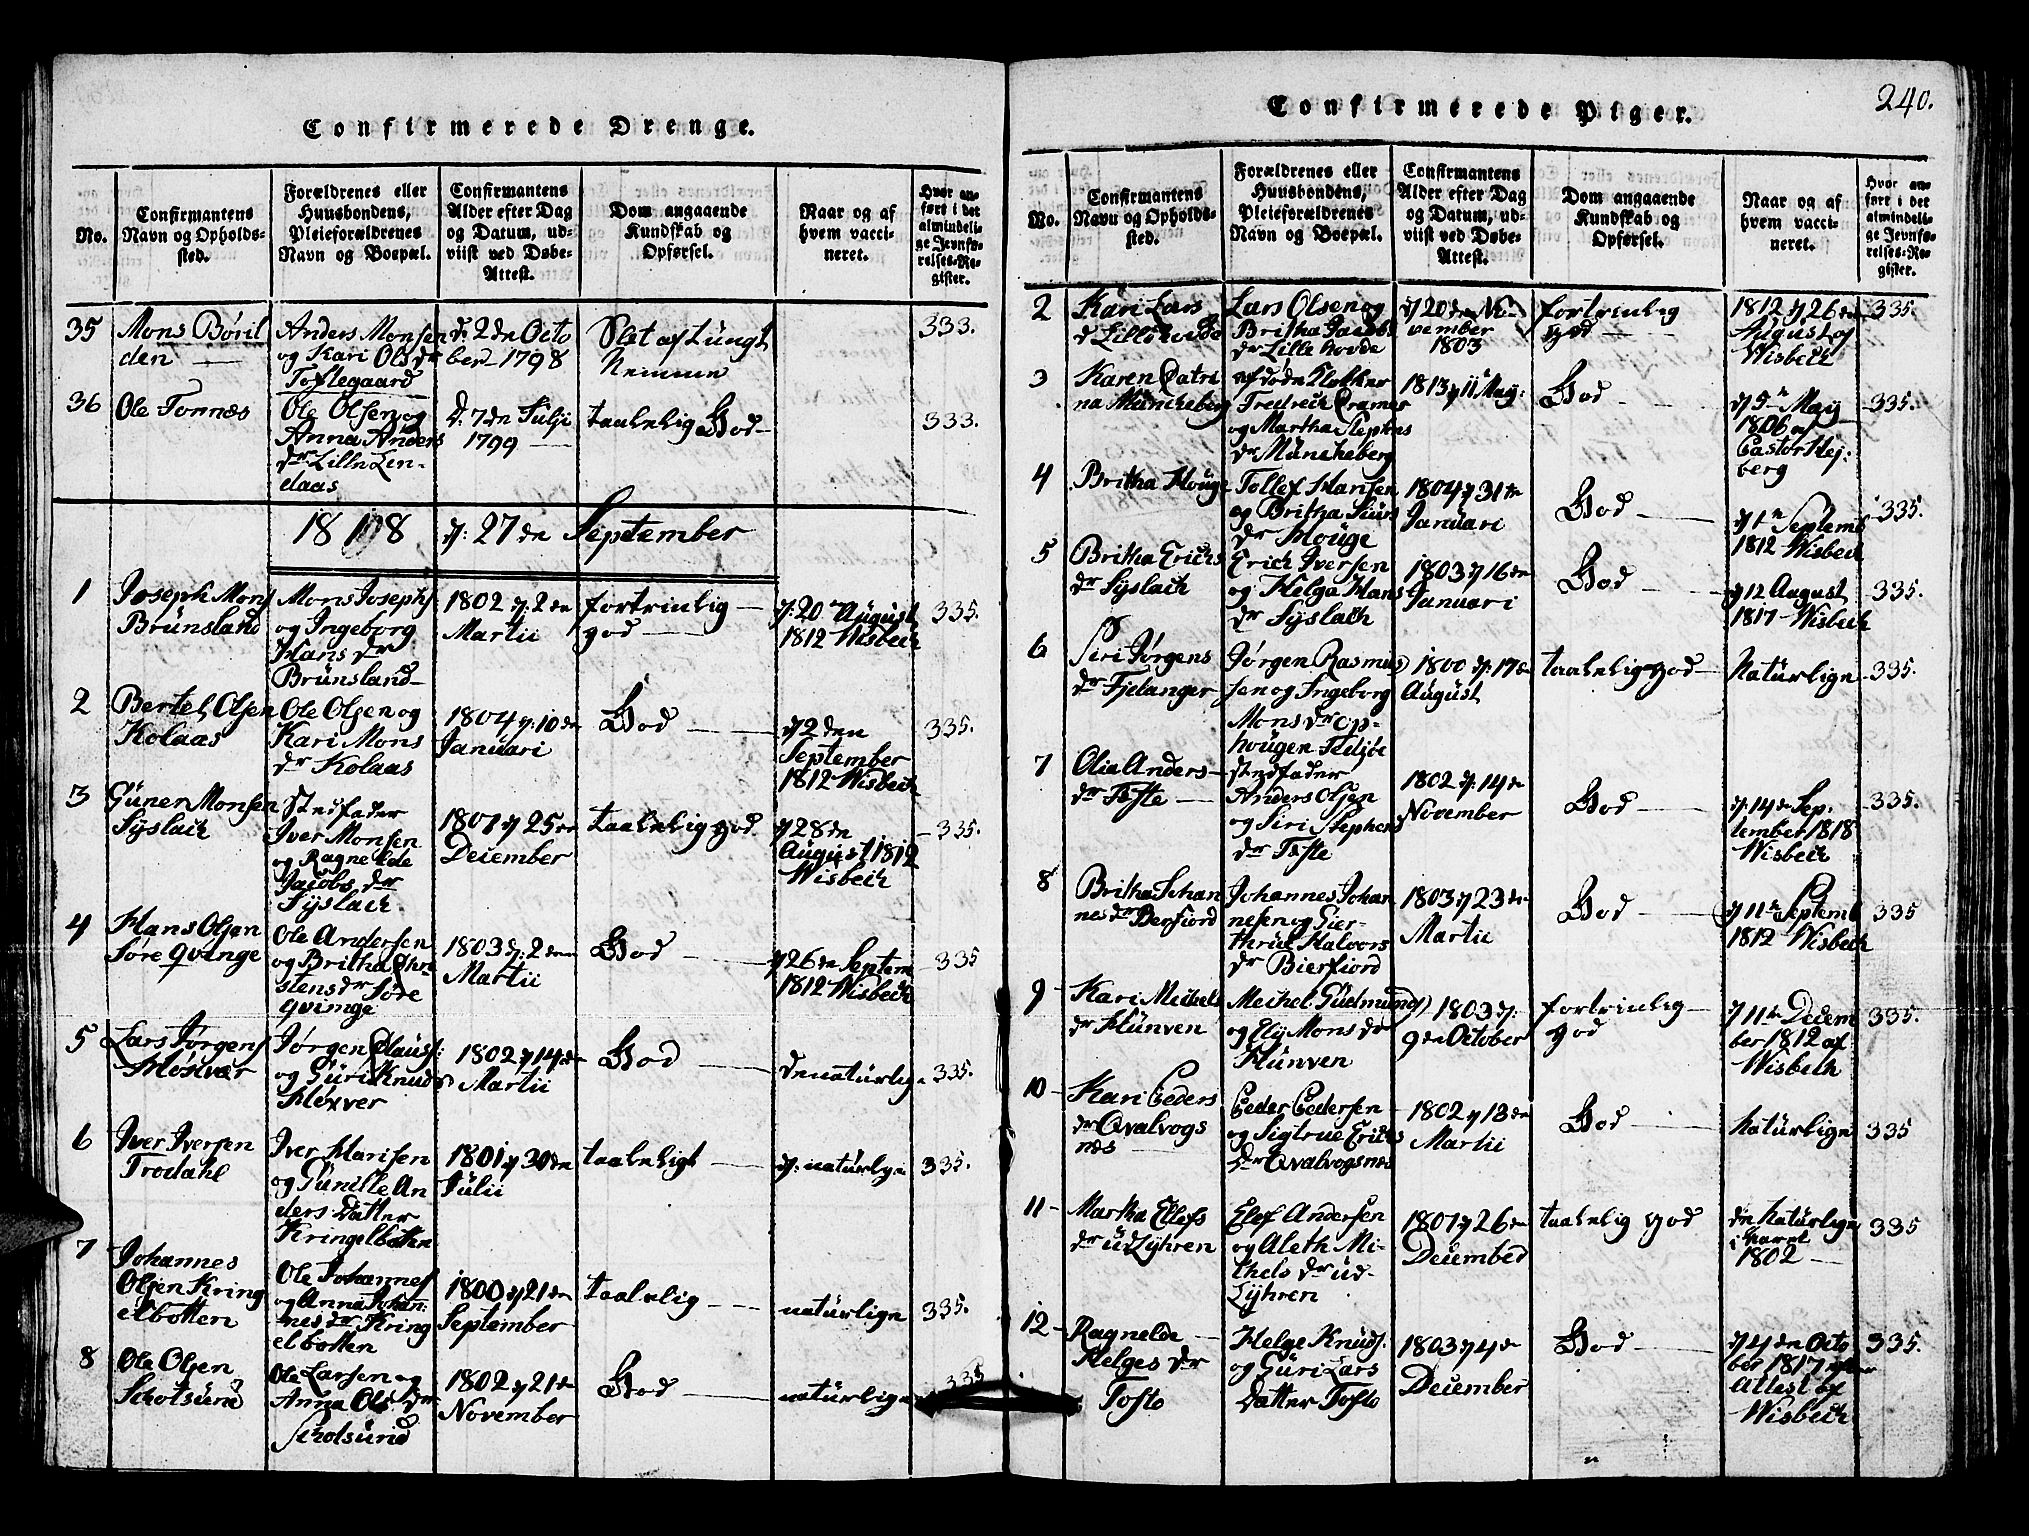 Confirmerede Drenge.
No.
Confirmantens
Navn og Opholds-
sted.
Forældrenes eller
Huusbondens,
Pleieforældrenes
Navn og Boepæl.
Confirmantens
Alder efter Dag
og Datum, ud-
viist ved Døbe-
Attest.
Dom angaaende
Kundskab og
Opførsel.
Naar og af
hvem vacci-
neret.
Hvor an-
ført i det
almindeli-
ge Jevnfø-
relses-Re-
gister.
35
Mons Böril
den
Anders Monsen
og Kari Ols dr
Toftegaard
d: 2den Octo
ber 1798
Slet af tungt
Nemme
333.
36
Ole Tonnæs
Ole Olsen og
Anna Anders
dr Lille Len-
daas
d: 7de Julii
1799
taalelig God
333.
1818 d: 27de September
1
Joseph Mons
Brünsland
Mons Josephs
og Ingeborg
Hans dr
Brünsland
1802 d: 2den
Martii
fortrinlig
god
d: 20 August
1812 Wisbech
335.
2
Bertel Olsen
Kolaas
Ole Olsen og
Kari Mons
dr Kolaas
1804 d: 10de
Januari
God
d 2den
September
1812 Wisbech
335.
3
Güner Monsen
Syslach
Stedfader
Iver Monsen
og Ragnelde
Jacobs dr
Syslach.
1801 d 25de
December
taalelig god
d 28de
August 1812
Wisbech
335.
4
Hans Olsen
Söre Qvinge
Ole Andersen
og Britha Chri
stens dr Söre
qvinge
1803 d: 2den
Martii
God
d 26de Septem
1812 Wisbech
335
5
Lars Jörgens
Möxvær
Jörgen Clauss:
og Güri Knuds
Möxver
1802 d 14de
Martii
God
de naturlige
335.
6
Iver Iversen
Trodahl
Iver Hansen
og Günille An
ders Datter
Kringelbotten
1801 d 30de
Julii
taaleligt
d: naturlige
335.
7
Johannes
Olsen Kring
elbotten
Ole Johannes
og Anna Johan
nes dr Kring
elbotten
1800 d 21de
September
taalelig
naturlige
335.
8
Ole Olsen
Schotsund
Ole Larsen og
Anna Ols dr
Schotsund
1802 d 21de
November
God
naturlige
335
Confirmerede Piger.
240.
No.
Confirmantens
Navn og Opholds-
sted.
Forældrenes eller
Huusbondens,
Pleieforældrenes
Navn og Boepæl.
Confirmantens
Alder efter Dag
og Datum, ud-
viist ved Døbe-
Attest.
Dom angaaende
Kundskab og
Opførsel.
Naar og af
hvem vacci-
neret.
Hvor an-
ført i det
almindeli-
ge Jevnfø-
relses-Re-
gister.
2
Kari Lars
dr Lillehovde
Lars Olsen og
Britha Jacobs
dr Lille hovde
d 20de No
vember
1803
fortrinlig
god
1812 d 26de
August af
Wisbech
335.
3
Karen Catri
na Müncheberg
afdøde Klokker
Fredrech Cramer
og Martha Stephens
dr Müncheberg
1813 d 11 Maÿ:
God
d 5te Maÿ
1806 af
Castor Hej-
berg
335.
4
Britha Houge
Tollef Hansen
og Britha Siürs
dr Houge
1804 d 31te
Januari
God
d 1te Septemb
1812 Wisbech
335.
5
Britha Erichs
dr Syslach
Erich Iversen
og Helga Hans
dr Syslach
1803 d 16de
Januari
God
d 12 August
1817 Wisbech
335.
6
Siri Jörgens
dr Fjelanger
Jörgen Rasmus
sen og Ingeborg
Mons dr Op-
hougen Fedjöe
1800 d: 17de
August
taalelig god
Naturlige
335.
7
Olia Anders
dr Tofte
stedfader
Anders Olsen
og Siri Stephens
dr Tofte
1802 d: 14de
November
God
d: 14de Sep-
tember 1818
Wisbech
335.
8
Britha Johan
nes dr Berfiord
Johannes Johan
nesen og Gier-
thrud Halvors
dr Bierfiord
1803 d 23de
Martii
God
d 11te Septemb
1812 Wisbech
335
9
Kari Michels
dr Hünven
Michel Gudmunds
og Ely Mons dr
Hünven
1803 d:
9de October
fortrinlig
god
d 11te Decem
ber 1812 af
Wisbech
335.
10
Kari Peders
dr Qvalvogs
næs
Peder Pedersen
og Sigtrue Erichs
dr Qvalvogsnæs
1802 d 13de
Martii
God
Naturlige
335
11
Martha Ellefs
dr Udlyhren
Elef Andersen
og Aleth Mi-
chels dr ud-
Lyhren
1801 d 26de
December
taalelig god
de Naturlige
i Aaret
1802
335
12
Ragnelde
Helges dr
Tofte
Helge Knuds:
og Güri Lars
Datter Tofte
1803 d 4de
December
God
d 4de Octo
ber 1817 efter
Attest af
Wisbech
335.